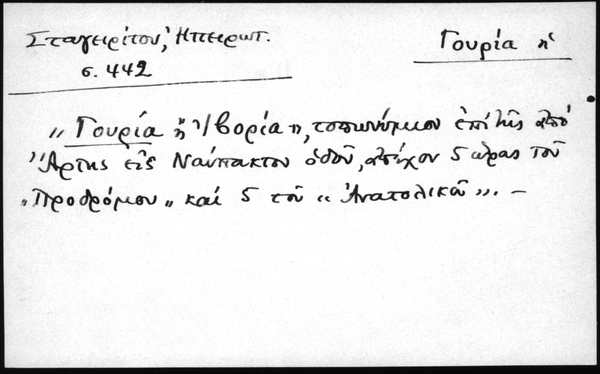 Σταγειρίτου, Ἠπειρωτ.
σ. 442
Γουρία ἡ
"Γουρία ἢ Ἰβορία", τοπωνύμιον ἐπὶ τῆς ἀπὸ
Ἄρτης εἰς Ναύπακτον ὁδοῦ, ἀπέχον 5 ὥρας τοῦ
"Προδρόμου" καὶ 5 τοῦ "Ἀνατολικοῦ". –